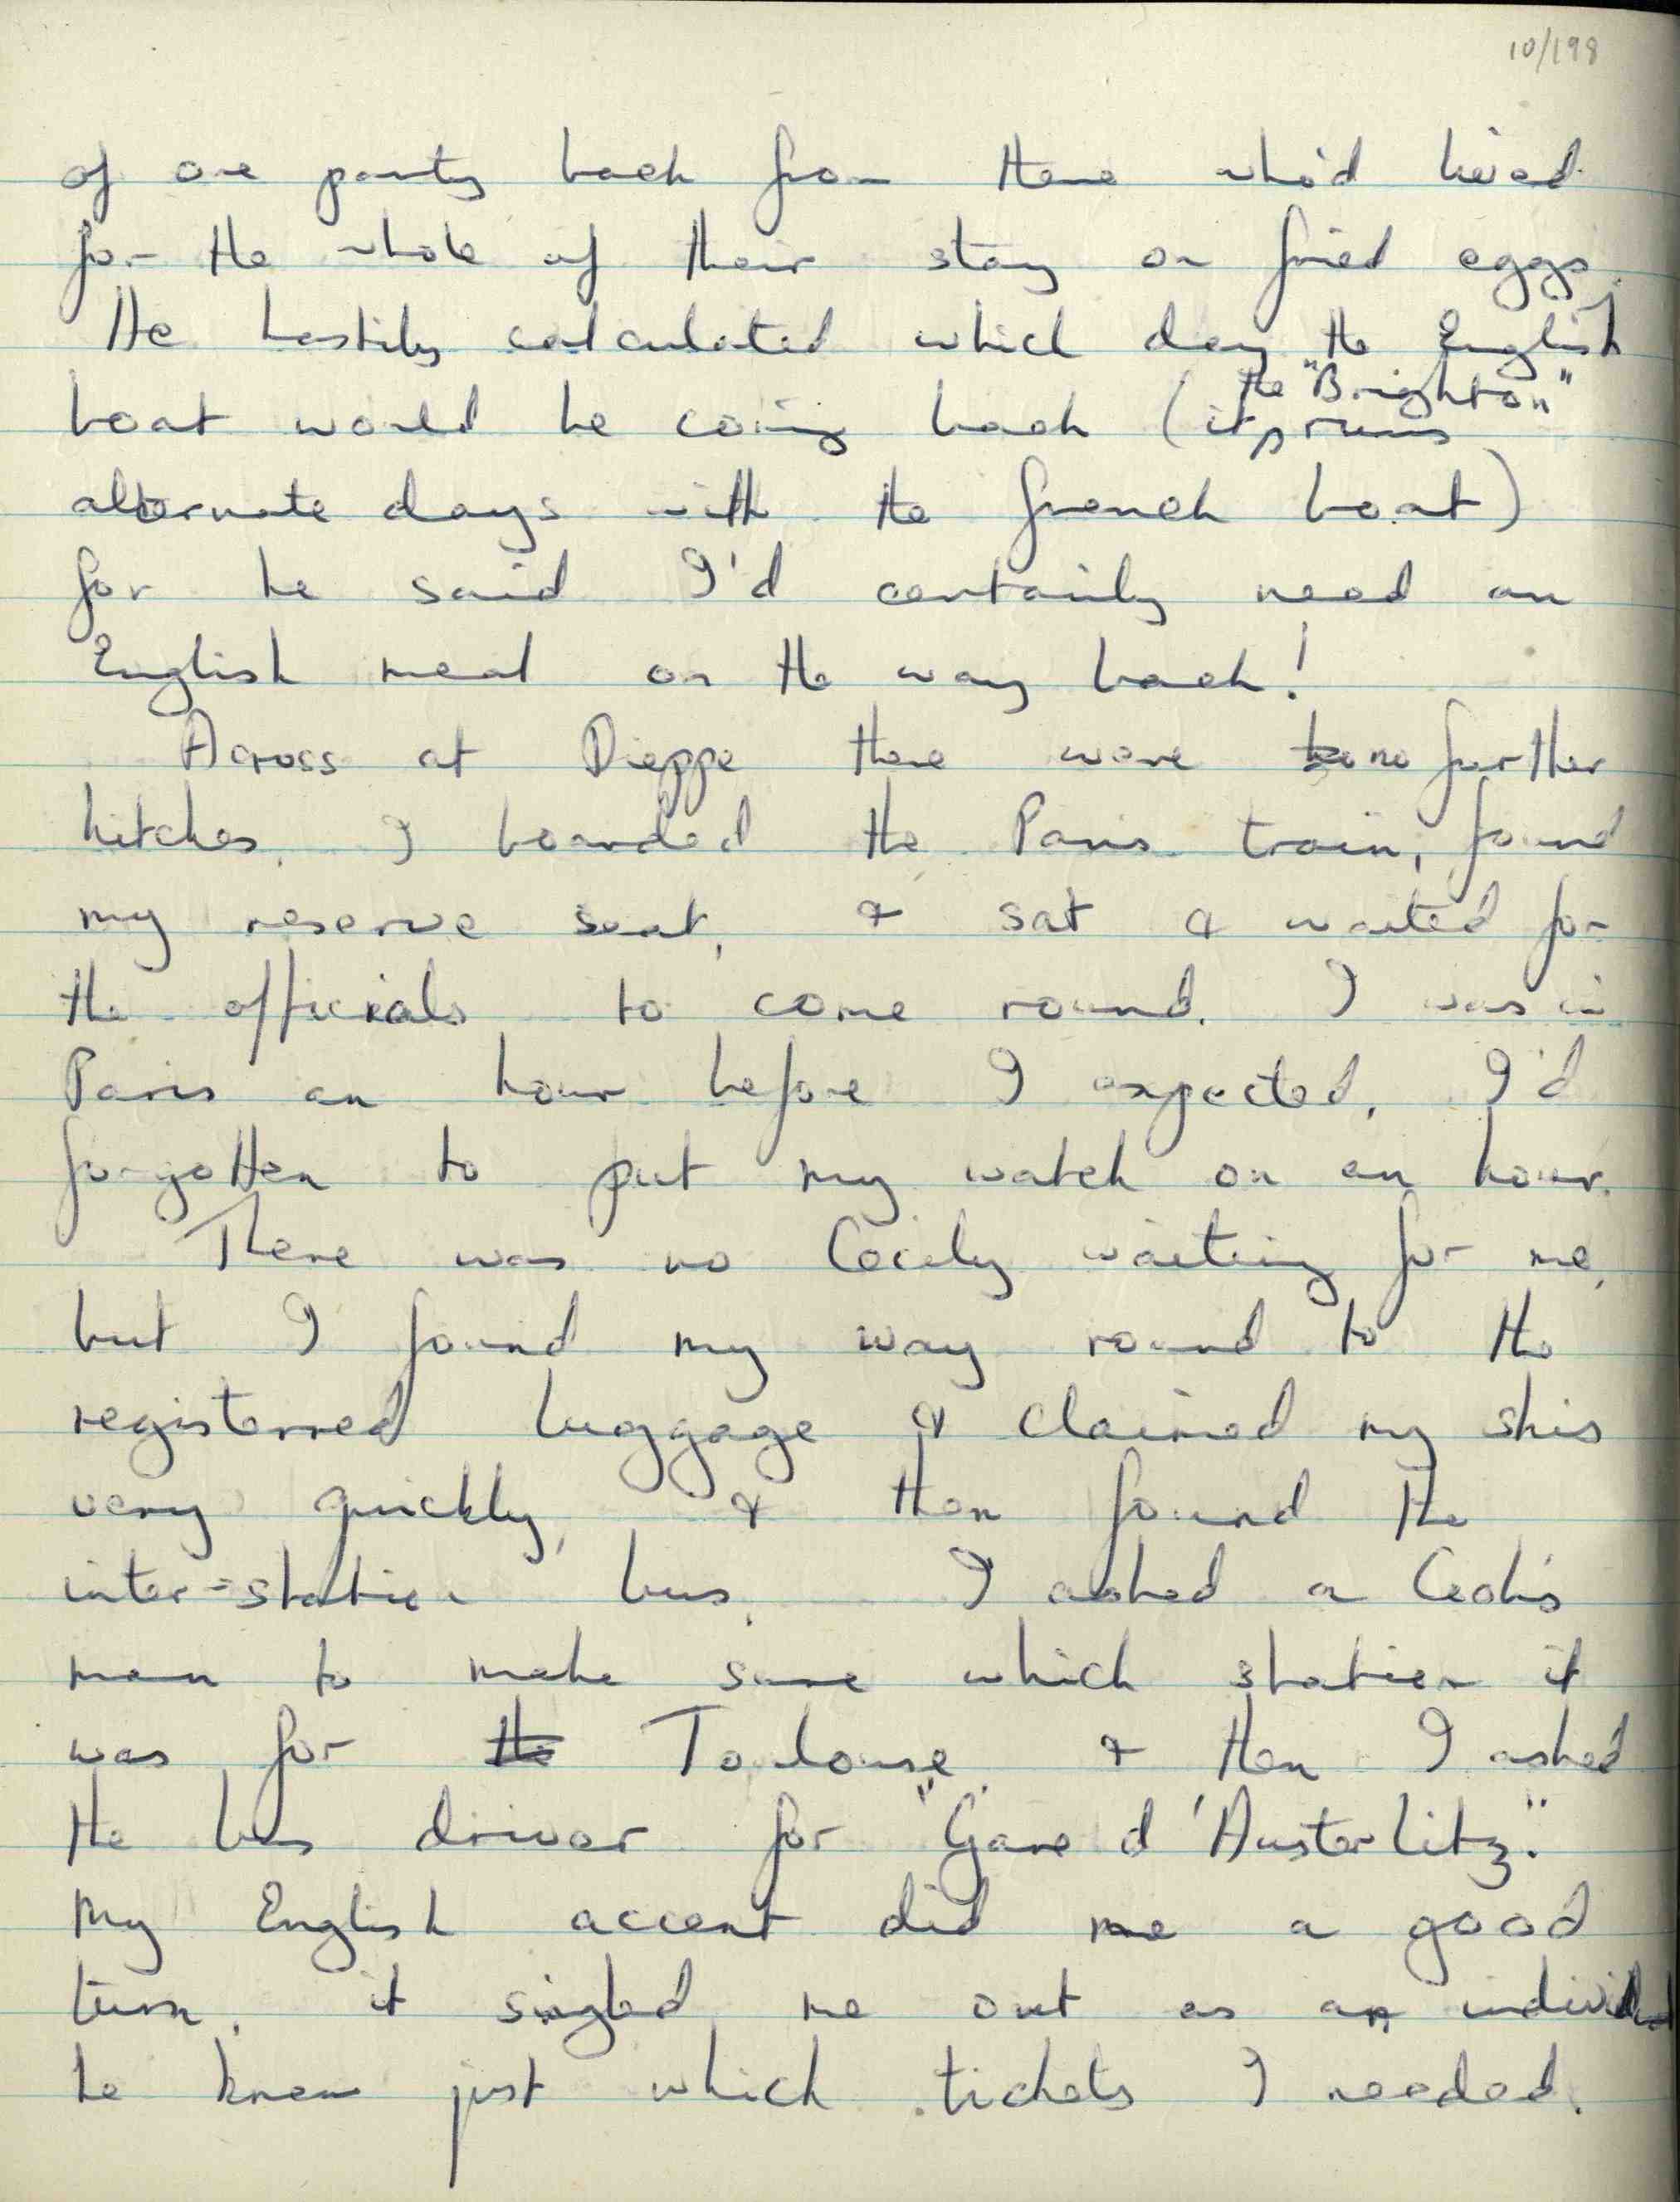 10/198
of one party back from there who'd lived
for the whole of their stay on fried eggs.
He hastily calculated which day the English
the "Brighton"
boat would be coming back (it runs
alternate days with the french boat)
for he said I'd certainly need an
English meal on the way back!
Across at Dieppe there were no further
hitches. I boarded the Paris train, found
my reserve seat, & sat & waited for
the officials to come round. I was in
Paris an hour before I expected. I'd
forgotten to put my watch on an hour.
There was no Cecily waiting for me,
but I found my way round to the
registerred luggage & claimed my skis
very quickly, & then found the
inter-station bus. I asked a Cooks
man to make sure which station it
was for the Toulouse & then I asked
the bus driver for "Gare d'Austerlitz."
My English accent did me a good
turn. it singled me out as an individual
he knew just which tickets I needed.